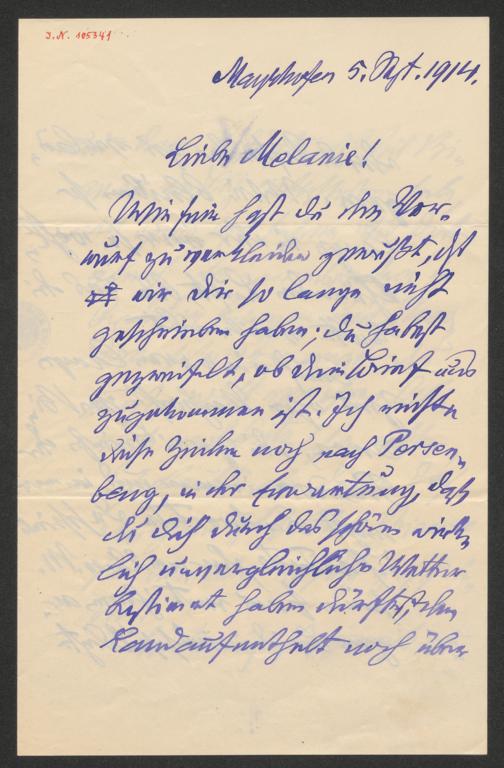 J.N. 105341
Mayrhofen 5. Sept. 1914.
Liebe Melanie!
Wie fein hast du den Vor-
wurf zu verkleiden gewußt, daß
wir dir so lange nicht
geschrieben haben; du habest
gezweifelt, ob dein Brief uns
zugekommen ist. Ich richte
diese Zeilen noch nach Persen-
beug, in der Erwartung, daß
du dich durch das schöne wirk-
lich unvergleichliche Wetter
bestimmt haben dürftest, den
Landaufenthalt noch über